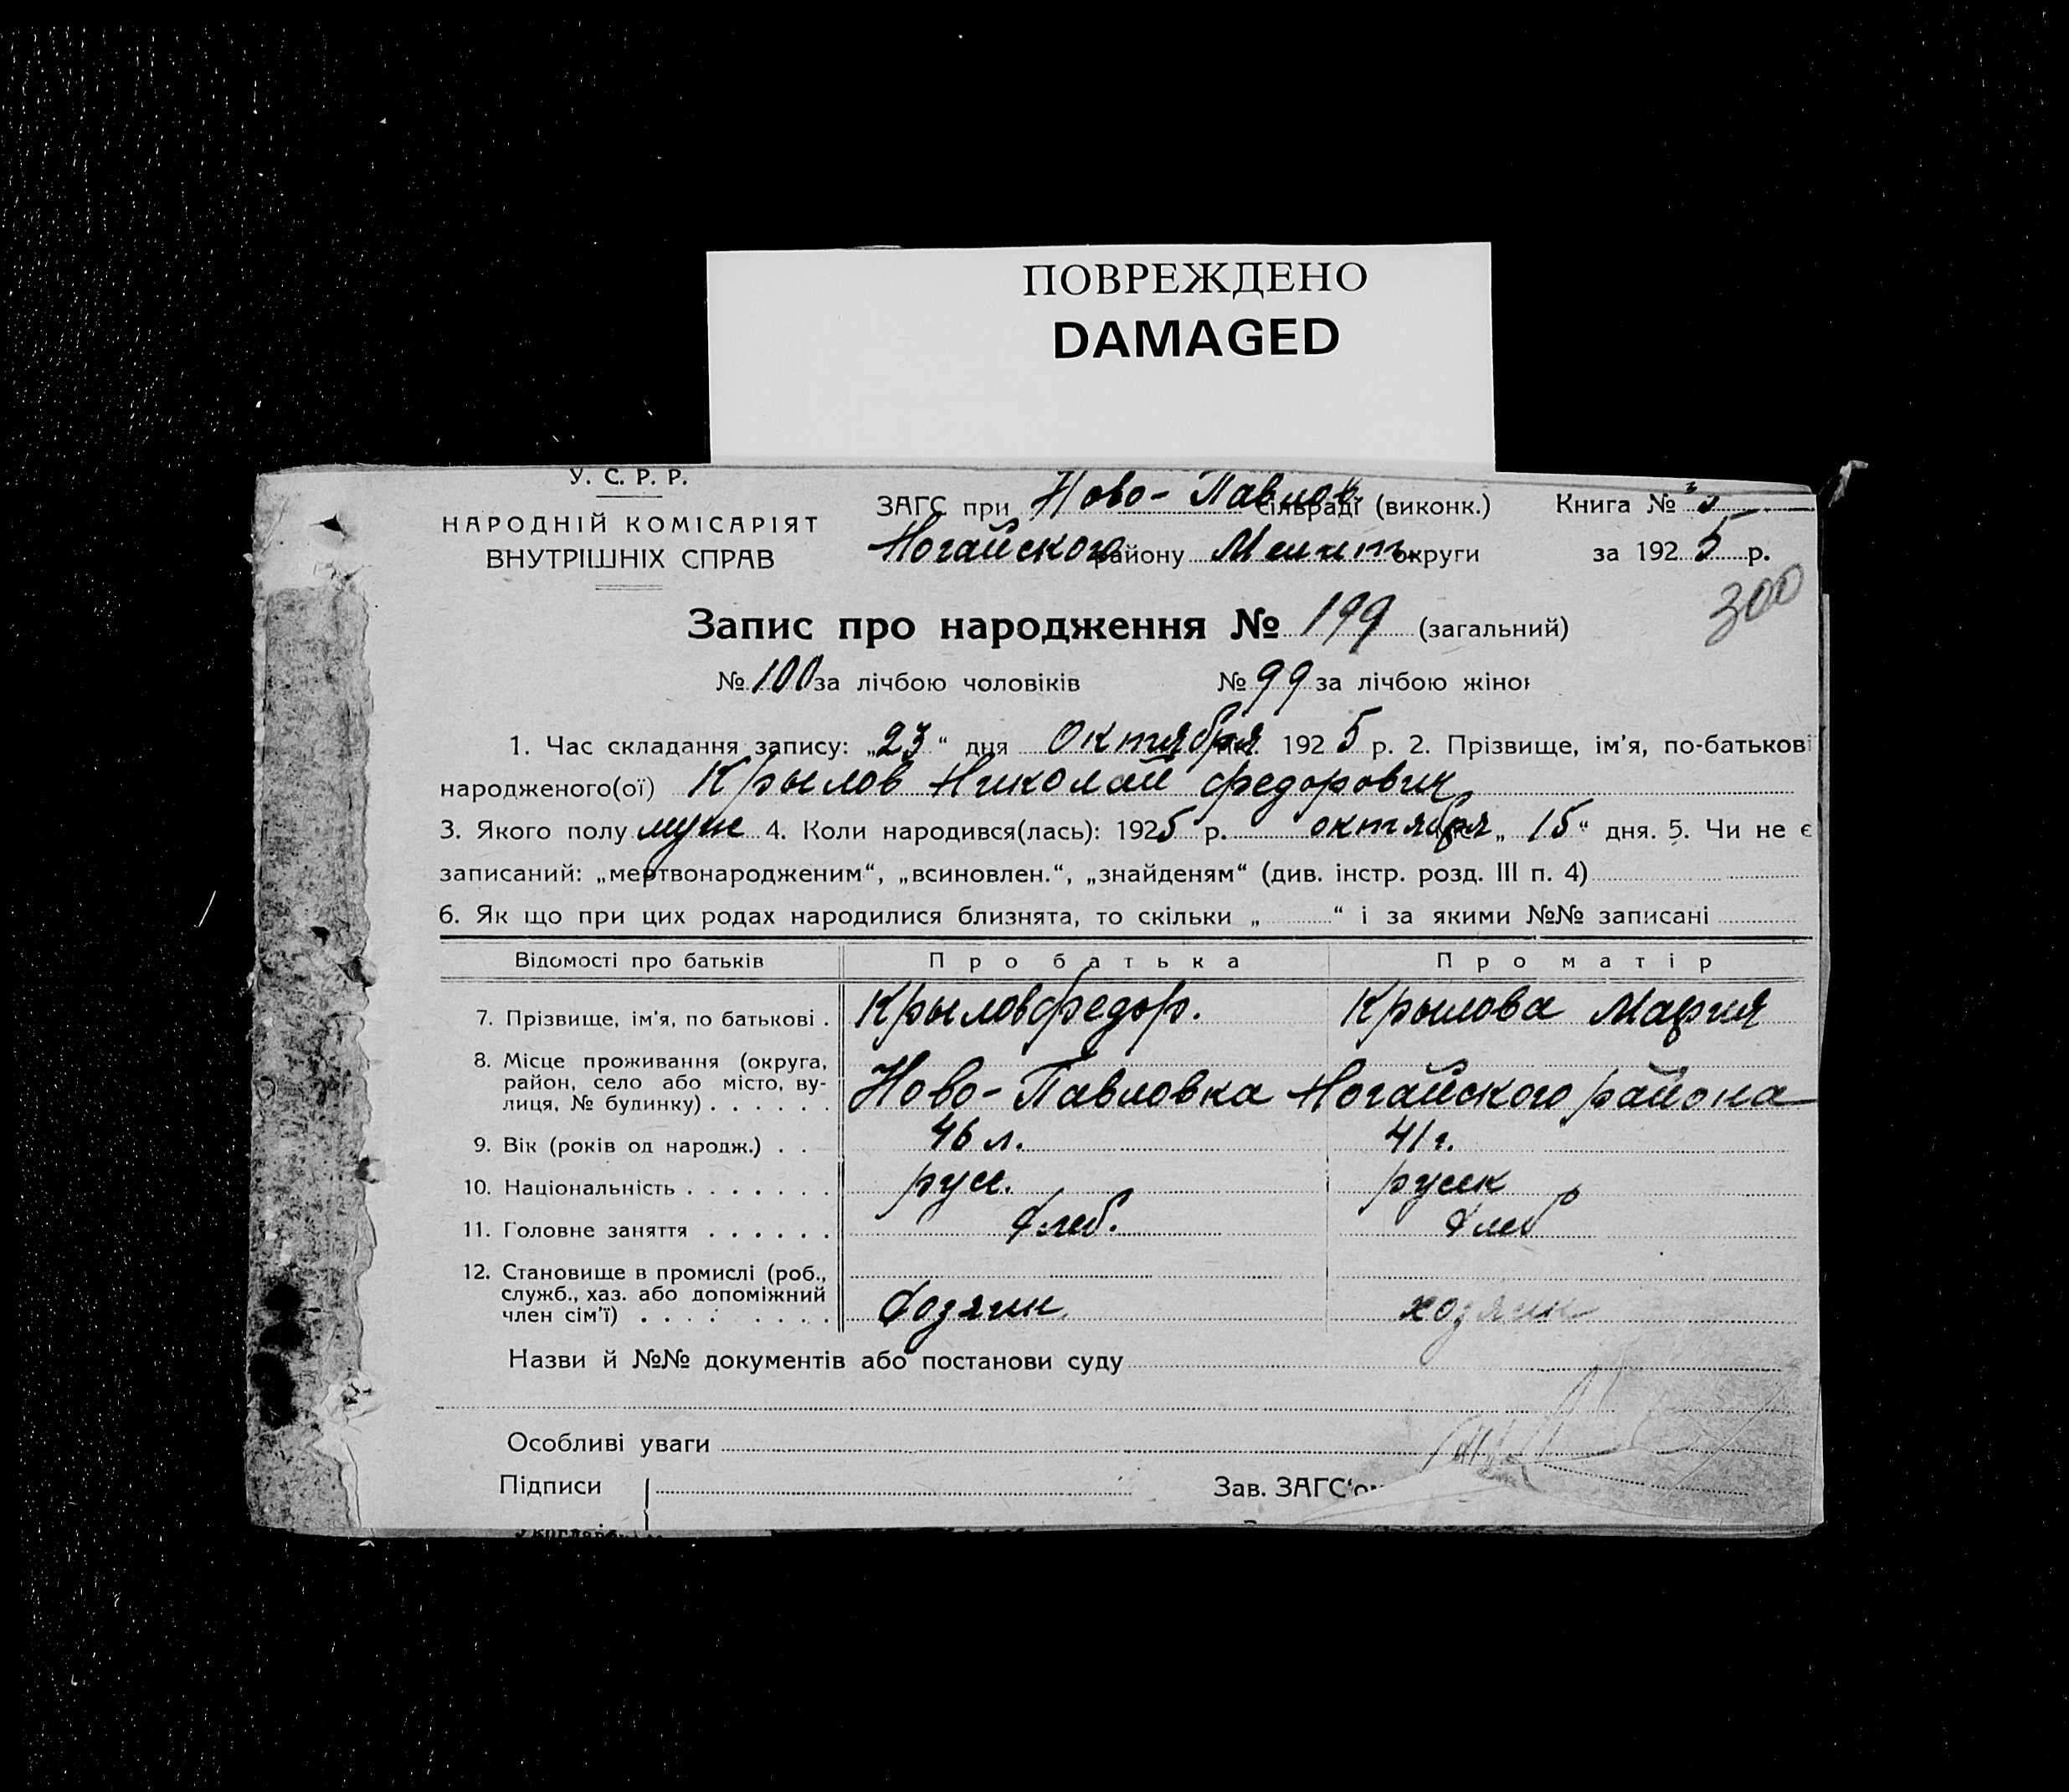 ПОВРЕЖДЕНО
DAMAGED
У. С. Р. Р.
НАРОДНІЙ КОМІСАРІЯТ
ВНУТРІШНІХ СПРАВ
ЗАГС при Ново-Павлов сільраді (виконк.)
Ногайского району Мелит. округи
Книга № 3
за 1925 р.
300
Запис про народження № 199 (загальний)
№ 100 за лічбою чоловіків № 99 за лічбою жінок
1. Час складання запису: „23“ дня октября 1925 р. 2. Прізвище, ім’я, по-батькові
народженого(ої) Крылов Николай Федорович
3. Якого полу муж 4. Коли народився(лась): 1925 р. октября „15“ дня. 5. Чи не є
записаний: „мертвонародженим“, „всиновлен.“, „знайденям“ (див. інстр. розд. III п. 4)
6. Як що при цих родах народилися близнята, то скільки „ “ і за якими №№ записані
Відомості про батьків Про батька Про матір
7. Прізвище, ім’я, по батькові . Крылов Федор. Крылова Мария
8. Місце проживання (округа,
район, село або місто, ву-
лиця, № будинку) . . . . . . Ново-Павловка Ногайского района
9. Вік (років од народж.) . . 46 л. 41 г.
10. Національність . . . . . . . русс. русск
11. Головне заняття . . . . . . хлеб. хлеб
12. Становище в промислі (роб.,
служб., хаз. або допоміжний
член сім’ї) . . . . . . . . хозяин хозяик
Назви й №№ документів або постанови суду
Особливі уваги
Підписи Зав. ЗАГС‘ом